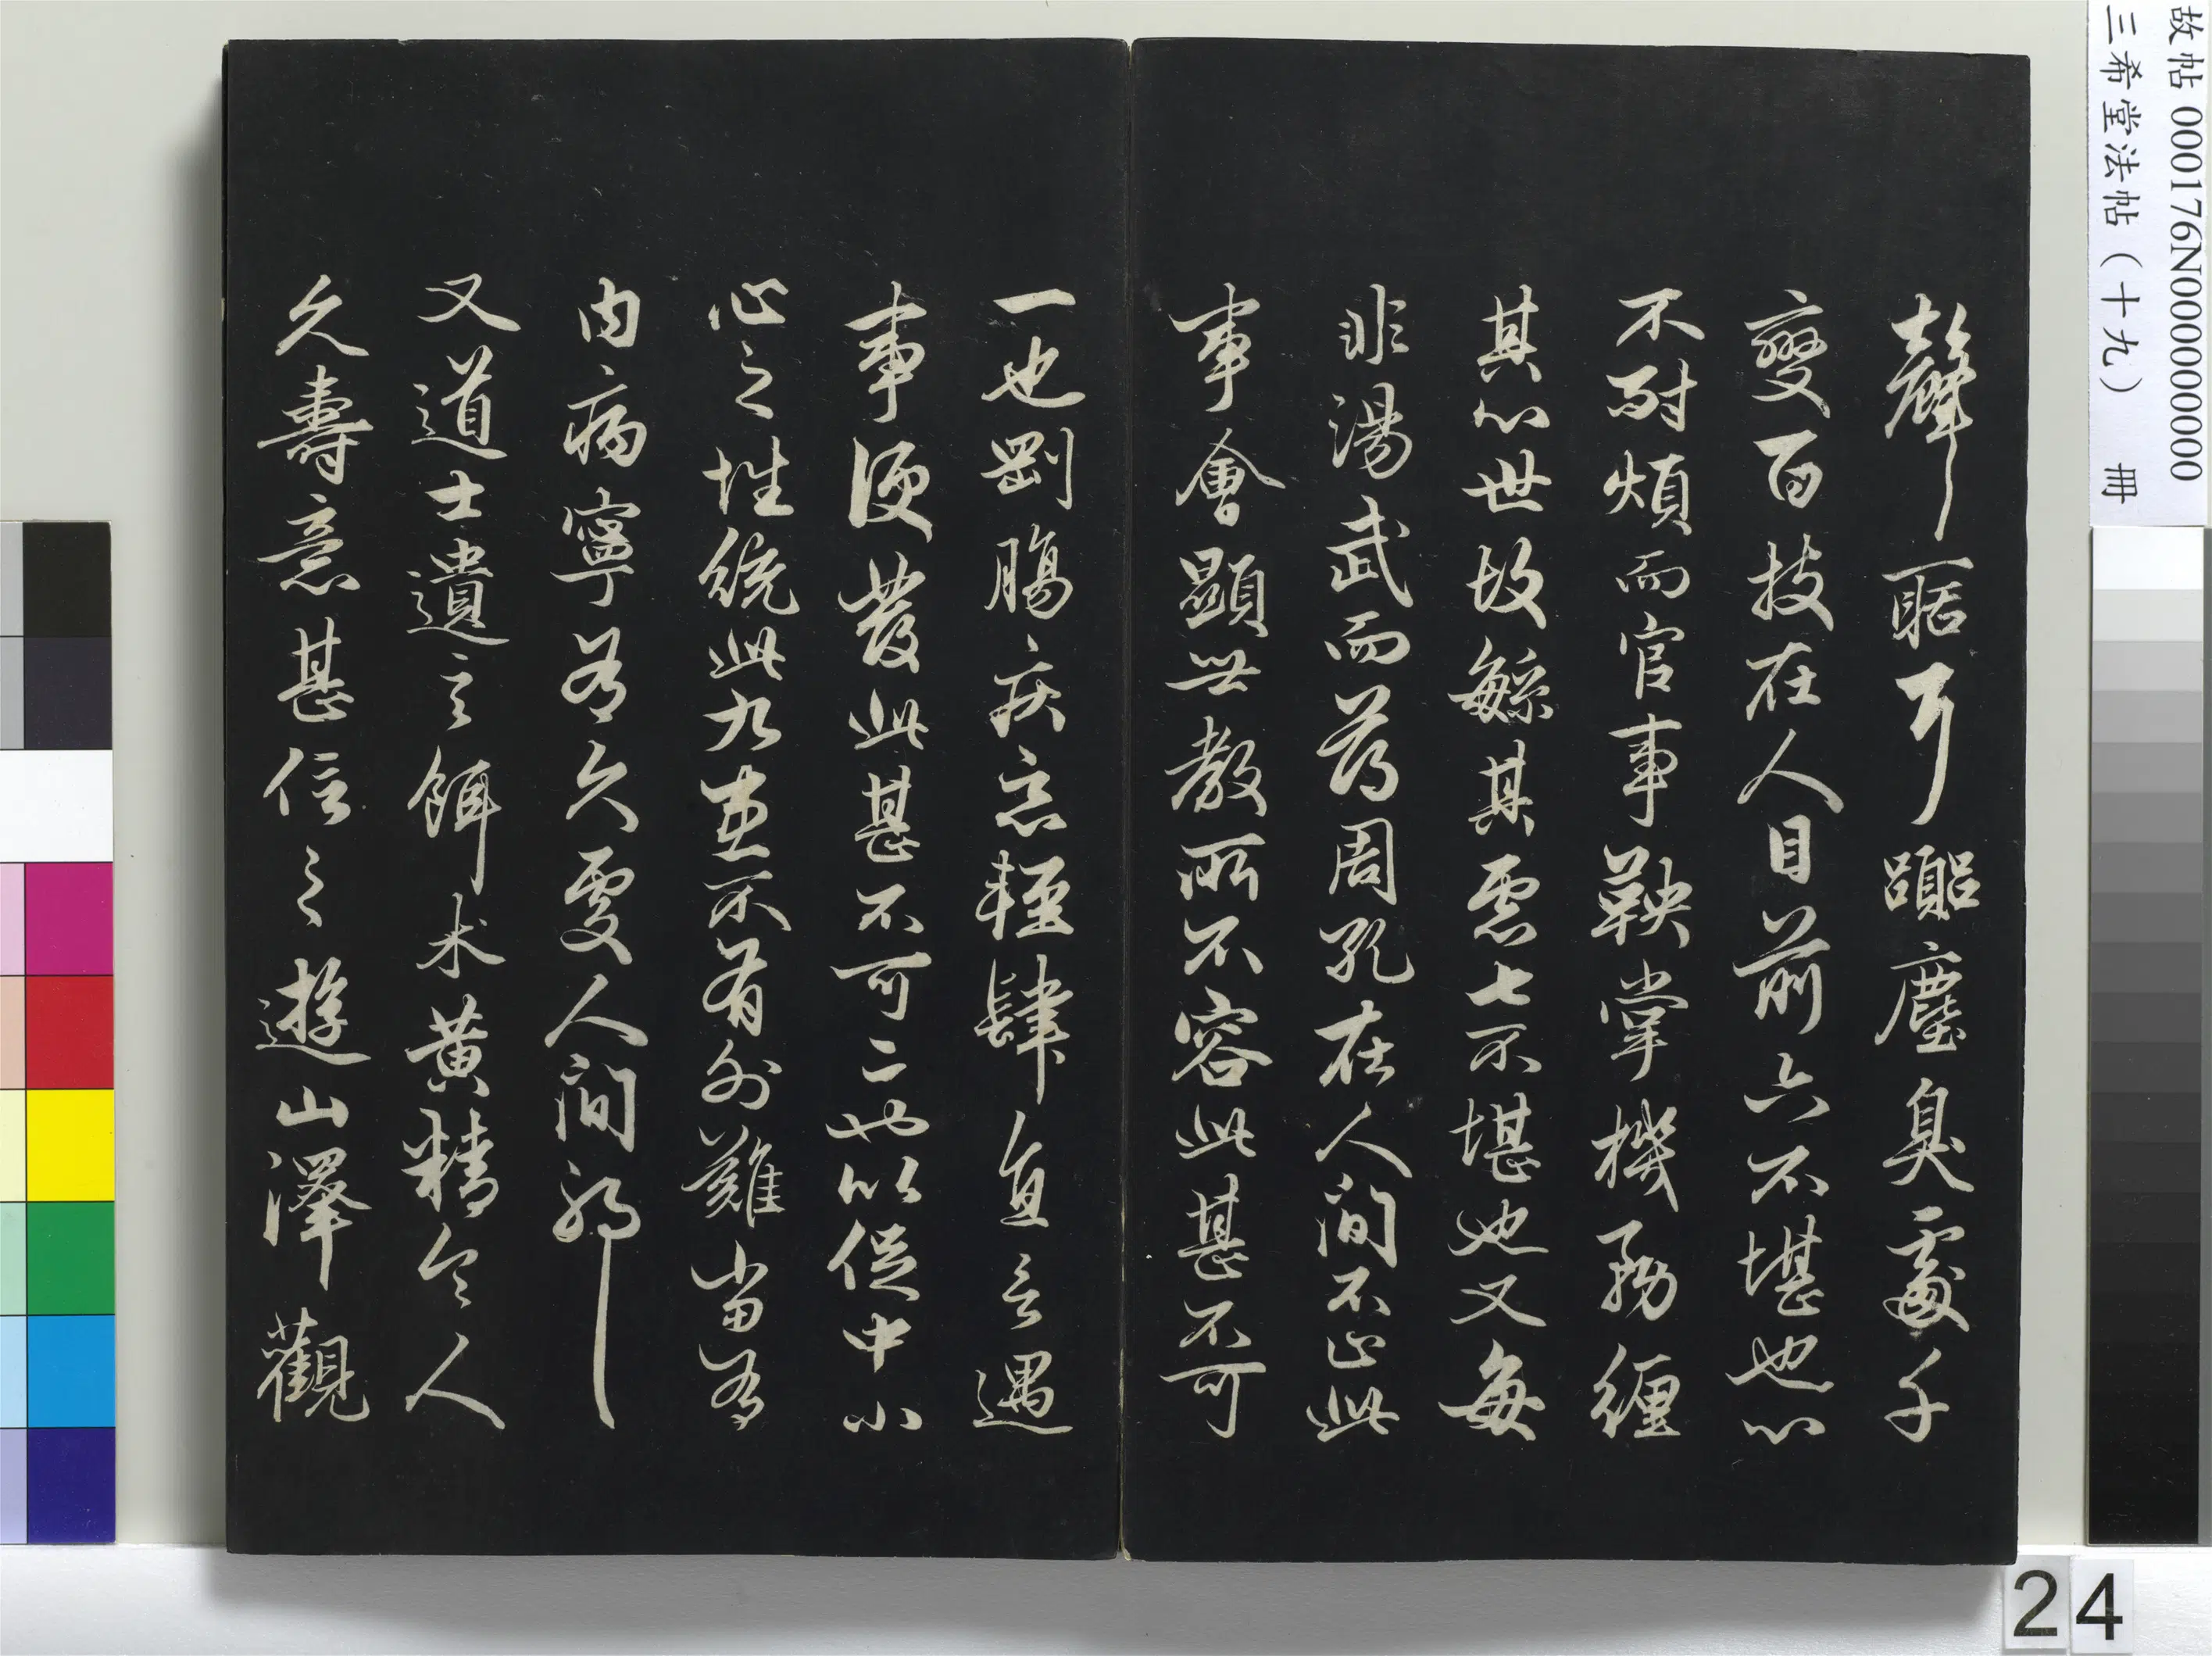 故帖 000176N000000000
三希堂法帖（十九） 冊
聲聒耳囂塵臭處千
變百技在人目前六不堪也心
不耐煩而官事鞅掌機務纏
其心世故繁其慮七不堪也又每
非湯武而薄周孔在人間不止此
事會顯世教所不容此甚不可
一也剛腸疾惡輕肆直言遇
事便發此甚不可二也以促中小
心之性統此九患不有外難當有
內病寧可久處人間邪
又道士遺言餌朮黃精令人
久壽意甚信之遊山澤觀
24